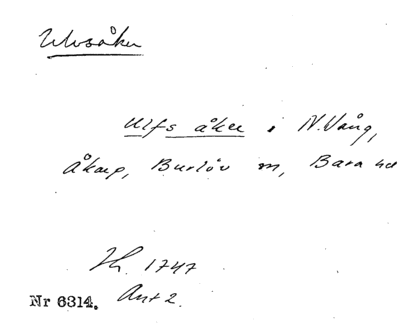 Ulvsåker
Ulfs åker i N. Vång,
Åkarp, Burlöv sn, Bara hd
1747
Nr 6314. Ant 2.